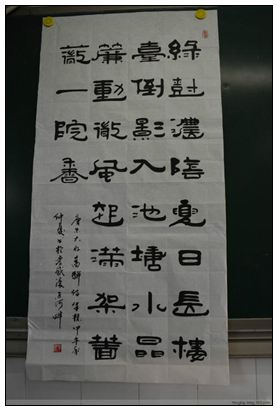 綠樹濃陰夏日長樓
臺倒影入池塘水晶
簾動微風起滿架薔
薇一院香
高駢詩
仲夏